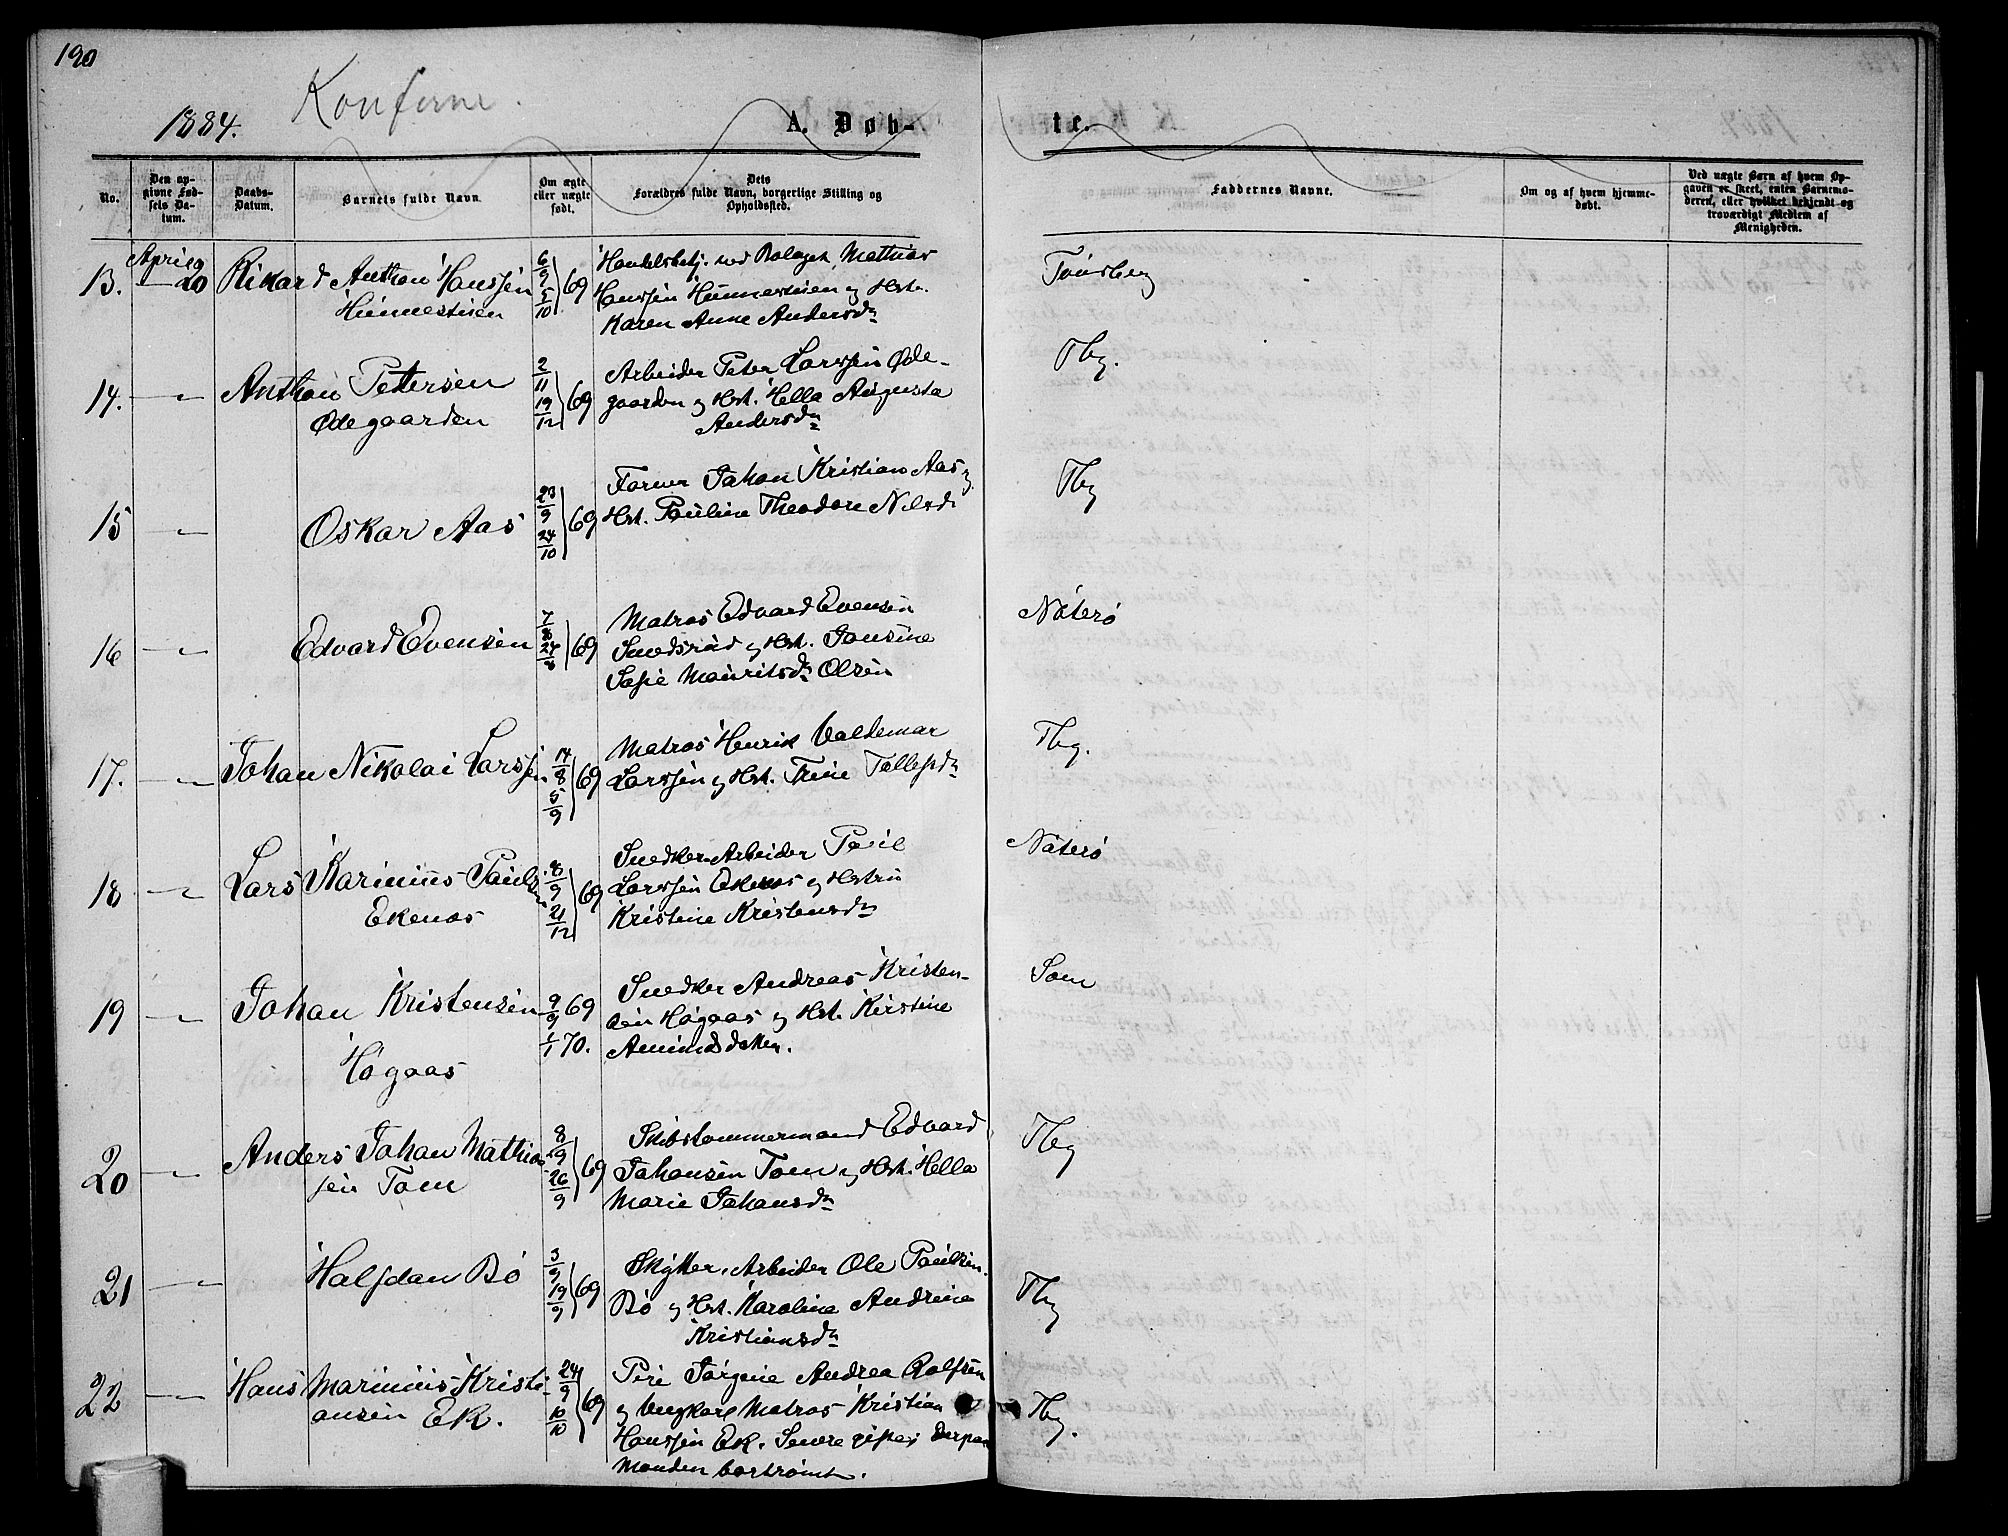 190
Konferm.
1884.
A. Døb-
te.
No.
Den op-
givne Fød-
sels Da-
tum.
Daabs-
Datum.
Barnets fulde Navn.
Om ægte
eller uægte
født.
Dets
Forældres fulde Navn, borgerlige Stilling og
Opholdssted.
Faddernes Navne.
Om og af hvem hjemme-
døbt.
Ved uægte Barn af hvem Op-
gaven er skeet, enten Barnemo-
deren, eller hvilket bekjendt og
troværdigt Medlem af
Menigheden.
13.
April
20
Rikard Anthon Hanssen
Hunnestuen
6/9 5/10 69
Handelsbetj. ved Bolaget Mathias
Hanssen Hunnestuen og Hst.
Karen Anne Andersd
Tønsberg
14.
Anthon Pettersen
Ødegaarden
2/11 19/12 69
Arbeider Peter Larssen Øde-
gaarden og Hst. Hella Augusta
Andersd
Tbg.
15
Oskar Aas
23/9 24/10 69
Former Johan Kristian Aas og
Hst. Pauline Theodore Nilsd
Tbg
16
Edvard Evensen
69
Matros Edvard Evensen
Smedsrud og Hst. Jonsine
Sofie Mauritsd Olsen
Nøterø
17.
Johan Nikolai Larssen
14/8 5/9 69
Matros Henrik Valdemar
Larssen og Hst. Trine Tollefsd
Tbg.
18
Lars Karinius Pauls
Ekenes
8/9 21/12 69
Snedker Arbeider Paul
Larssen Ekenes og Hstru
Kristine Kristensd
Nøterø
19
Johan Kristensen
Høgaas
9/9 69
1/1 70.
Snedker Andreas Kristen-
sen Høgaas og Hst. Kirstine
Amundsdatter.
Sem
20
Anders Johan Mathias-
sen Tom
8/9 26/9 69
Skibstømmermand Edvard
Johansen Tom og Hst. Hella
Marie Johansd
Tbg
21
Halfdan Bø
3/9 19/9 69
Arbeider Ole Paulsen
Bø og Hst. Karoline Andrine
Kristiansd
Tbg
22
Hans Marinius Kristi-
ansen Ek.
24/9 10/10 69
Pige Jørgine Andrea Rolfsen
og Ungkarl Matros Kristian
Hanssen Ek. Senere gifter derpaa
Manden bortrømt.
Tbg.